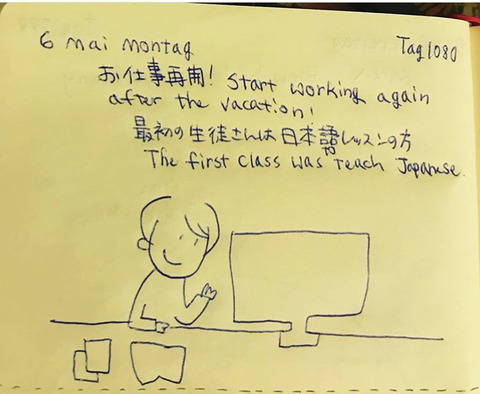 6 mai montag
Tag 1080
お仕事再開! Start working again
after the vacation!
最初の生徒さんは日本語レッスンの方
The first class was teach Japanese.